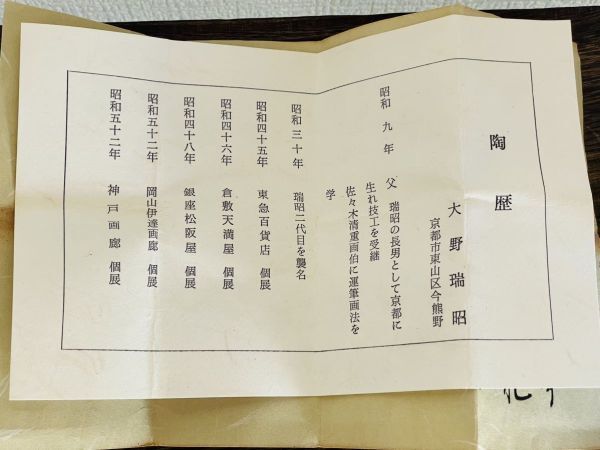 陶歴
大野瑞昭
京都市東山区今熊野
昭和九年 父 瑞昭の長男として京都に
生れ技工を受継
佐々木清重画伯に運筆画法を
学
昭和三十年 瑞昭二代目を襲名
昭和四十五年 東急百貨店 個展
昭和四十六年 倉敷天満屋 個展
昭和四十八年 銀座松阪屋 個展
昭和五十二年 岡山伊達画廊 個展
昭和五十二年 神戸画廊 個展